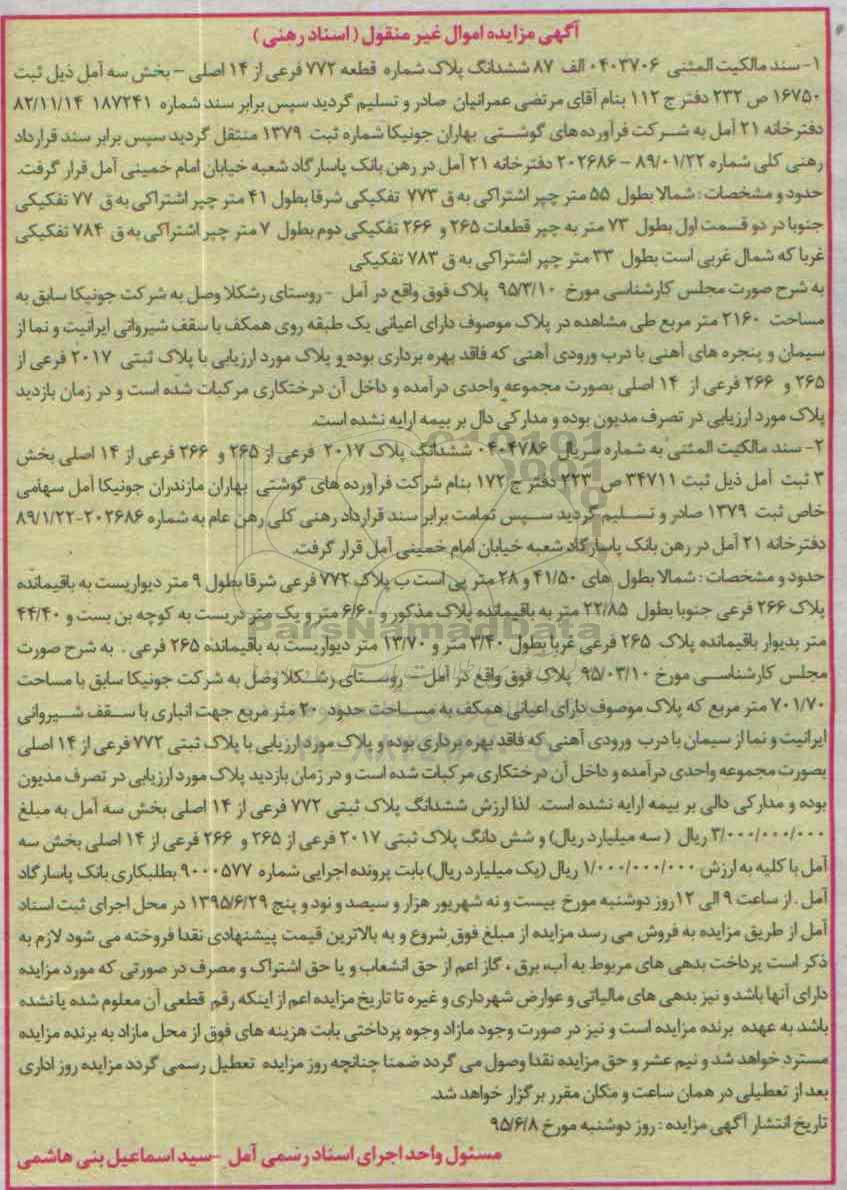 آگهی مزایده اموال غیر منقول (اسناد رهنی)
۱- سند مالکیت المثنی ۰۴۰۳۷۰۶ الف ۸۷ ششدانگ پلاک شماره قطعه ۷۷۲ فرعی از ۱۴ اصلی - بخش سه آمل ذیل ثبت
۱۶۷۵۰ ص ۲۳۲ دفتر ج ۱۱۲ بنام آقای مرتضی عمرانیان صادر و تسلیم گردید سپس برابر سند شماره ۱۸۷۲۴۱ ۸۲/۱۱/۱۴
دفترخانه ۲۱ آمل به شرکت فرآورده های گوشتی بهاران جونیکا شماره ثبت ۱۳۷۹ منتقل گردید سپس برابر سند قرارداد
رهنی کلی شماره ۸۹/۰۱/۲۲ - ۲۰۲۶۸۶ دفترخانه ۲۱ آمل در رهن بانک پاسارگاد شعبه خیابان امام خمینی آمل قرار گرفت.
حدود و مشخصات : شمالا بطول ۵۵ متر چپر اشتراکی به ق ۷۷۳ تفکیکی شرقا بطول ۴۱ متر چپر اشتراکی به ق ۷۷ تفکیکی
جنوبا در دو قسمت اول بطول ۷۳ متر به چپر قطعات ۲۶۵ و ۲۶۶ تفکیکی دوم بطول ۷ متر چپر اشتراکی به ق ۷۸۴ تفکیکی
غربا که شمال غربی است بطول ۳۳ متر چپر اشتراکی به ق ۷۸۳ تفکیکی
به شرح صورت مجلس کارشناسی مورخ ۹۵/۳/۱۰ پلاک فوق واقع در آمل - روستای رشکلا وصل به شرکت جونیکا سابق به
مساحت ۲۱۶۰ متر مربع طی مشاهده در پلاک موصوف دارای اعیانی یک طبقه روی همکف با سقف شیروانی ایرانیت و نما از
سیمان و پنجره های آهنی با درب ورودی آهنی که فاقد بهره برداری بوده و پلاک مورد ارزیابی با پلاک ثبتی ۲۰۱۷ فرعی از
۲۶۵ و ۲۶۶ فرعی از ۱۴ اصلی بصورت مجموعه واحدی درآمده و داخل آن درختکاری مرکبات شده است و در زمان بازدید
پلاک مورد ارزیابی در تصرف مدیون بوده و مدارکی دال بر بیمه ارایه نشده است.
۲- سند مالکیت المثنی به شماره سریال ۰۴۰۴۷۸۶ ششدانگ پلاک ۲۰۱۷ فرعی از ۲۶۵ و ۲۶۶ فرعی از ۱۴ اصلی بخش
۳ ثبت آمل ذیل ثبت ۳۴۷۱۱ ص ۲۲۳ دفتر ج ۱۷۲ بنام شرکت فرآورده های گوشتی بهاران مازندران جونیکا آمل سهامی
خاص ثبت ۱۳۷۹ صادر و تسلیم گردید سپس تمامت برابر سند قرارداد رهنی کلی رهن عام به شماره ۲۰۲۶۸۶-۸۹/۱/۲۲
دفترخانه ۲۱ آمل در رهن بانک پاسارگاد شعبه خیابان امام خمینی آمل قرار گرفت.
حدود و مشخصات : شمالا بطول های ۴۱/۵۰ و ۲۸ متر پی است ب پلاک ۷۷۲ فرعی شرقا بطول ۹ متر دیواریست به باقیمانده
پلاک ۲۶۶ فرعی جنوبا بطول ۲۲/۸۵ متر به باقیمانده پلاک مذکور و ۶/۶۰ متر و یک متر دریست به کوچه بن بست و ۴۴/۴۰
متر بدیوار باقیمانده پلاک ۲۶۵ فرعی غربا بطول ۳/۴۰ متر و ۱۳/۷۰ متر دیواریست به باقیمانده ۲۶۵ فرعی . به شرح صورت
مجلس کارشناسی مورخ ۹۵/۰۳/۱۰ پلاک فوق واقع در آمل - روستای رشکلا وصل به شرکت جونیکا سابق با مساحت
۷۰۱/۷۰ متر مربع که پلاک موصوف دارای اعیانی همکف به مساحت حدود ۲۰ متر مربع جهت انباری با سقف شیروانی
ایرانیت و نما از سیمان با درب ورودی آهنی که فاقد بهره برداری بوده و پلاک مورد ارزیابی با پلاک ثبتی ۷۷۲ فرعی از ۱۴ اصلی
بصورت مجموعه واحدی درآمده و داخل آن درختکاری مرکبات شده است و در زمان بازدید پلاک مورد ارزیابی در تصرف مدیون
بوده و مدارکی دالی بر بیمه ارایه نشده است. لذا ارزش ششدانگ پلاک ثبتی ۷۷۲ فرعی از ۱۴ اصلی بخش سه آمل به مبلغ
۳/۰۰۰/۰۰۰/۰۰۰ ریال (سه میلیارد ریال) و شش دانگ پلاک ثبتی ۲۰۱۷ فرعی از ۲۶۵ و ۲۶۶ فرعی از ۱۴ اصلی بخش سه
آمل با کلیه به ارزش ۱/۰۰۰/۰۰۰/۰۰۰ ریال (یک میلیارد ریال) بابت پرونده اجرایی شماره ۹۰۰۰۵۷۷ بطلبکاری بانک پاسارگاد
آمل . از ساعت ۹ الی ۱۲ روز دوشنبه مورخ بیست و نه شهریور هزار و سیصد و نود و پنج ۱۳۹۵/۶/۲۹ در محل اجرای ثبت اسناد
آمل از طریق مزایده به فروش می رسد مزایده از مبلغ فوق شروع و به بالاترین قیمت پیشنهادی نقدا فروخته می شود لازم به
ذکر است پرداخت بدهی های مربوط به آب، برق ، گاز اعم از حق انشعاب و یا حق اشتراک و مصرف در صورتی که مورد مزایده
دارای آنها باشد و نیز بدهی های مالیاتی و عوارض شهرداری و غیره تا تاریخ مزایده اعم از اینکه رقم قطعی آن معلوم شده یا نشده
باشد به عهده برنده مزایده است و نیز در صورت وجود مازاد وجوه پرداختی بابت هزینه های فوق از محل مازاد به برنده مزایده
مسترد خواهد شد و نیم عشر و حق مزایده نقدا وصول می گردد ضمنا چنانچه روز مزایده تعطیل رسمی گردد مزایده روز اداری
بعد از تعطیلی در همان ساعت و مکان مقرر برگزار خواهد شد.
تاریخ انتشار آگهی مزایده : روز دوشنبه مورخ ۹۵/۶/۸
مسئول واحد اجرای اسناد رسمی آمل - سید اسماعیل بنی هاشمی
ParsNamadData